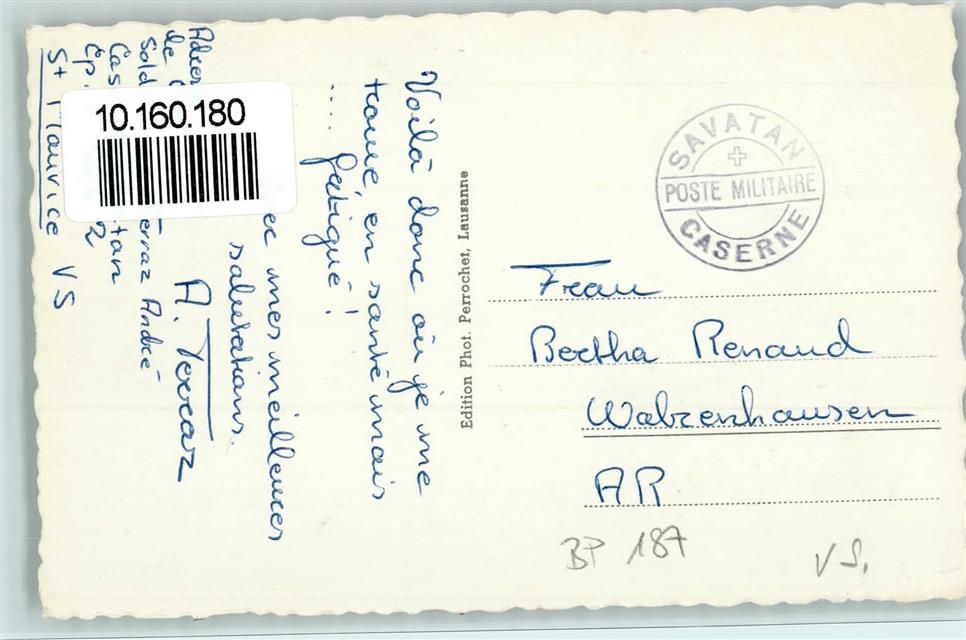 Voilà donc où je me
trouve, en santé mais
.... fatigué!
mes meilleures
salutations.
A. Terraz
de
Terraz André
St Maurice VS
10.160.180
Edition Phot. Perrochet, Lausanne
SAVATAN
POSTE MILITAIRE
CASERNE
Frau
Bertha Renaud
Walzenhausen
AR
BP 187
VS.